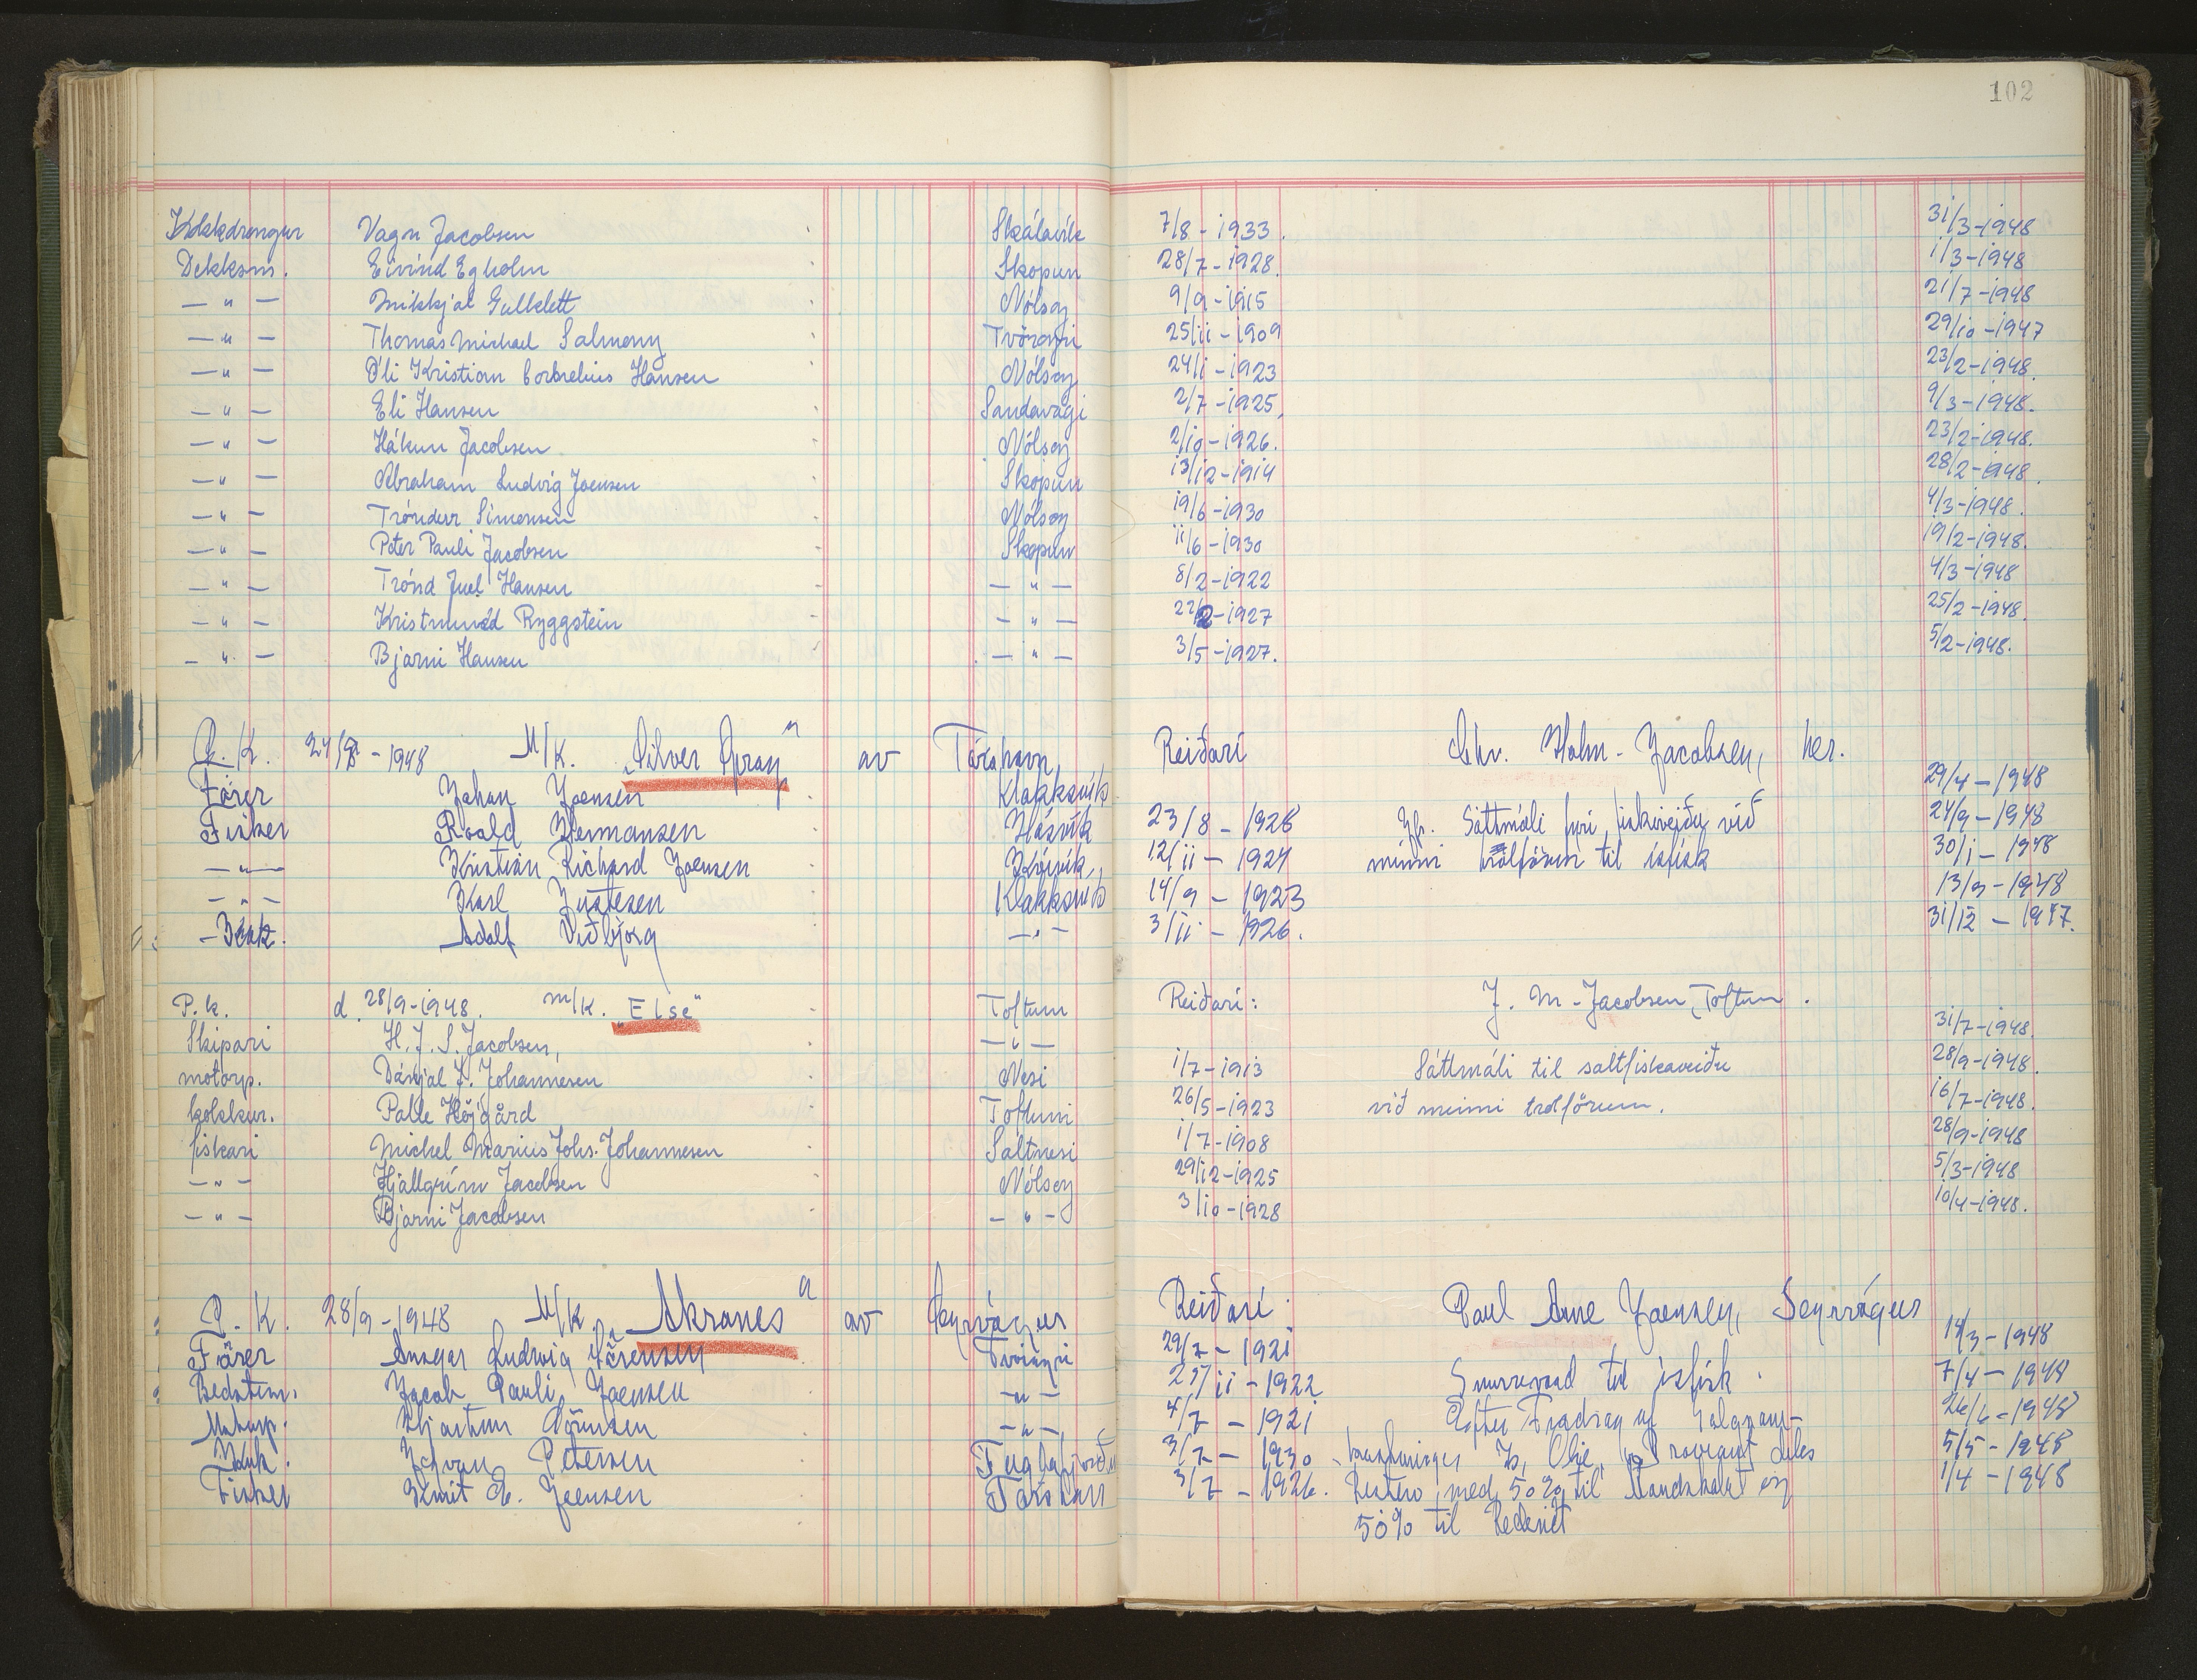 102
Kokkdrongur Vagn Jacobsen Skálavík 7/8-1933. 31/3-1948
Dekksm. Eivind Egholm Skopun 28/7-1928. 1/3-1948
— " — Mikkjal Gullklett Nólsoy 9/9-1915 21/7-1948
— " — Thomas Michael Salmony Tvöroyri 25/11-1909 29/10-1947
— " — Óli Kristian Cornelius Hansen Nólsoy 24/1-1923 23/2-1948.
— " — Eli Hansen Sandavági 2/7-1925, 9/3-1948.
— " — Hákun Jacobsen Nólsoy 2/10-1926. 23/2-1948.
— " — Abraham Ludvig Joensen Skopun 13/12-1914 28/2-1948.
— " — Tróndur Simonsen Nólsoy 19/6-1930 4/3-1948.
— " — Peter Pauli Jacobsen Skopun 11/6-1930 19/2-1948.
— " — Trónd Juel Hansen — " — 8/2-1922 4/3-1948
— " — Kristmundd Ryggstein — " — 22/2-1927 25/2-1948.
— " — Bjarni Hansen — " — 3/5-1927. 5/2-1948.
P.K. 24/9-1948 M/K. „Silver Spray" av Tórshavn, Reiðari Chr. Holm-Jacobsen, her.
Förer Johan Joensen Klakksvík 29/4-1948
Fisker Roald Hermansen Hósvík 23/8-1928 Jfr. Sáttmáli fyri fiskiveiðu við 24/9-1948
— " — Kristian Richard Joensen Kvívík, 12/11-1924 minni trolförum til ísfisk 30/1-1948
— " — Karl Justesen Klakksvík 14/9-1923 13/9-1948
— Kok. Adolf Viðbjorg — " — 3/11-1926. 31/12-1947.
P.k. d. 28/9-1948. m/k. „Else" Toftum Reiðari: J. M-Jacobsen, Toftum.
Skipari H. J. S. Jacobsen, — " — 31/7-1948.
motorp. Dánjal J. Johannesen Nesi 1/7-1913 Sáttmáli til saltfiskaveiðu 28/9-1948.
kokkur. Palle Höjgård Toftum 26/5-1923 við minni trolförum. 16/7-1948.
fiskari Michel Marius Johs. Johannesen Saltnesi 1/7-1908 28/9-1948
— " — Hjallgrím Jacobsen Nólsoy 29/12-1925 5/3-1948
— " — Bjarni Jacobsen — " — 3/10-1928 10/4-1948.
P.K. 28/9-1948 M/K „Akranes" av Sörvágur Reiðari: Paul Arne Joensen, Seyrvágur
Förer Ansgar Ludwig Sörensen Tvöroyri 29/7-1921 14/3-1948
Bedstem. Jacob Pauli Joensen — " — 25/11-1922 Snurrevaad til isfisk. 7/4-1948
Motorp. Hjartur Sörensen — " — 4/7-1921 Efter Fradrag af 26/6-1948
Kok. Petersen Fuglafjorður 3/7-1930 Is, Olie, Proviant deles 5/5-1948
Fisker Joensen Torshavn 3/7-1926. Resten med 50% til Mandskabet og 1/4-1948
50% til Rederiet